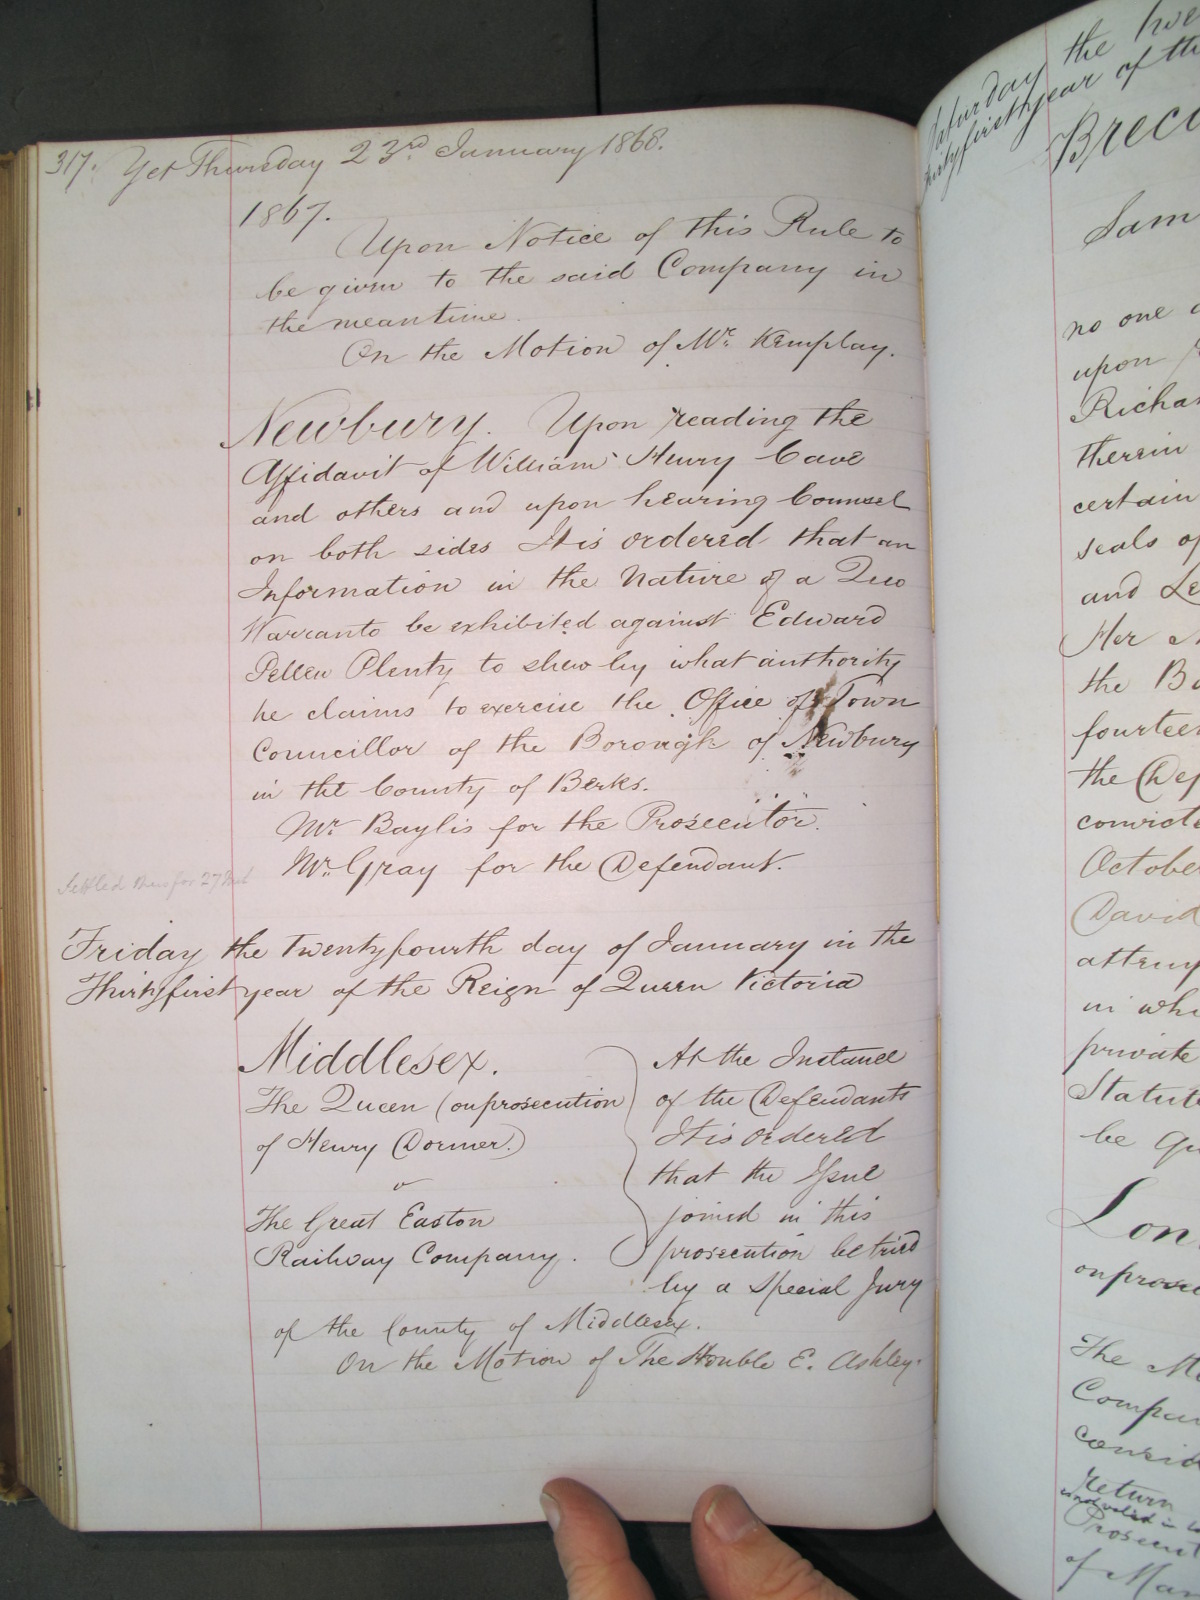 317. Yet Thursday 23rd January 1868.
1867.
Upon Notice of this Rule to
be given to the said Company in
the meantime.
On the Motion of Mr. Kemplay.
Newbury. Upon reading the
Affidavit of William Henry Cave
and others and upon hearing Counsel
on both sides It is ordered that an
Information in the nature of a Quo
Warranto be exhibited against Edward
Pellew Plenty to shew by what authority
he claims to exercise the Office of Town
Councillor of the Borough of Newbury
in the County of Berks.
Mr Baylis for the Prosecutor.
Mr. Gray for the Defendant.
Settled for 27
Friday the Twentyfourth day of January in the
Thirtyfirst year of the Reign of Queen Victoria
Middlesex.
The Queen (on prosecution
of Henry Dormer.)
v
The Great Easton
Railway Company.
At the Instance
of the Defendants
It is ordered
that the Issue
joined in this
prosecution be tried
by a Special Jury
of the County of Middlesex.
On the Motion of The Honble E. Ashley.
Saturday the
thirtyfirst year of the
Brec
Sam
no one
upon
Richar
therein
certain
seals of
and Le
Her
the Bo
fourteen
the Def
convicte
October
David
attemp
in whi
private
Statute
be qu
Lon
on prosec
The Me
Compan
consid
return
Prosecut
of Man